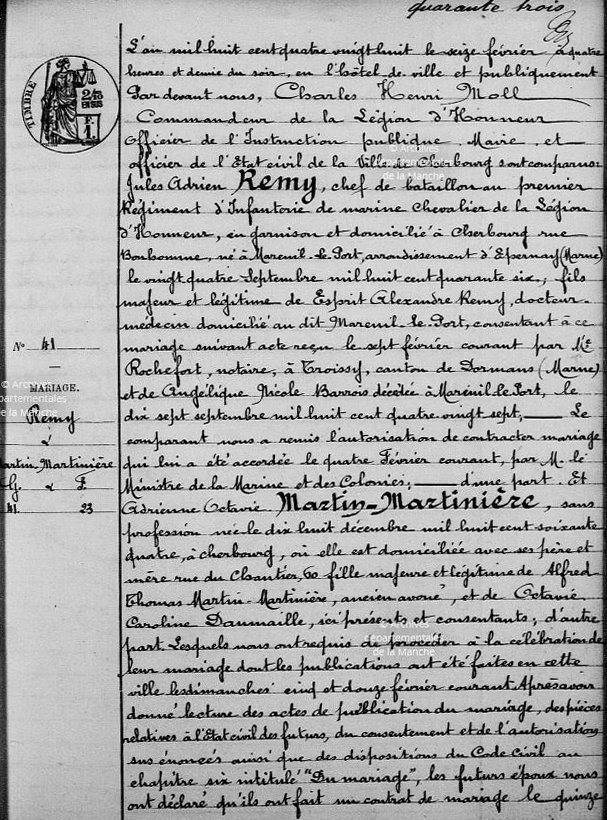 quarante trois
L'an mil huit cent quatre vingt huit le seize février à quatre
heures et demie du soir, en l'hôtel de ville et publiquement
Par devant nous, Charles Henri Moll
Commandeur de la Légion d'Honneur
Officier de l'Instruction publique, Maire, et
officier de l'Etat civil de la Ville de Cherbourg sont comparus:
Jules Adrien Remy, chef de bataillon au premier
Régiment d'Infanterie de marine Chevalier de la Légion
d'Honneur, en garnison et domicilié à Cherbourg rue
Bonhomme, né à Mareuil-le-Port, arrondissement d'Epernay (Marne)
le vingt quatre Septembre mil huit cent quarante six, fils
majeur et légitime de Esprit Alexandre Remy, docteur-
médecin domicilié au dit Mareuil-le-Port, consentant à ce
mariage suivant acte reçu le sept février courant par Me
Rochefort, notaire, à Troissy, canton de Dormans (Marne)
et de Angélique Nicole Barrois décédée à Mareuil-le-Port, le
dix sept septembre mil huit cent quatre vingt sept, Le
comparant nous a remis l'autorisation de contracter mariage
qui lui a été accordée le quatre Février courant, par M. le
Ministre de la Marine et des Colonies; d'une part. Et
Adrienne Octavie Martin-Martinière, sans
profession née le dix huit décembre mil huit cent soixante
quatre, à Cherbourg, où elle est domiciliée avec ses père et
mère rue du Chantier, 60 fille majeure et légitime de Alfred
Thomas Martin-Martinière, ancien avoué, et de Octavie
Caroline Daumaille, ici présents et consentants; d'autre
part. Lesquels nous ont requis de procéder à la célébration de
leur mariage dont les publications ont été faites en cette
ville les dimanches cinq et douze février courant. Après avoir
donné lecture des actes de publication du mariage, des pièces
relatives à l'Etat civil des futurs, du consentement et de l'autorisation
sus énoncés ainsi que des dispositions du Code Civil au
chapitre six intitulé "Du mariage", les futurs époux nous
ont déclaré qu'ils ont fait un contrat de mariage le quinze
TIMBRE
2/10
EN SUS
F.
1.
N° 41
MARIAGE.
Remy
&
Martin-Martinière
G. & F
41 23
© Archives
départementales
de la Manche
© Archives
départementales
de la Manche
© Archives
départementales
de la Manche